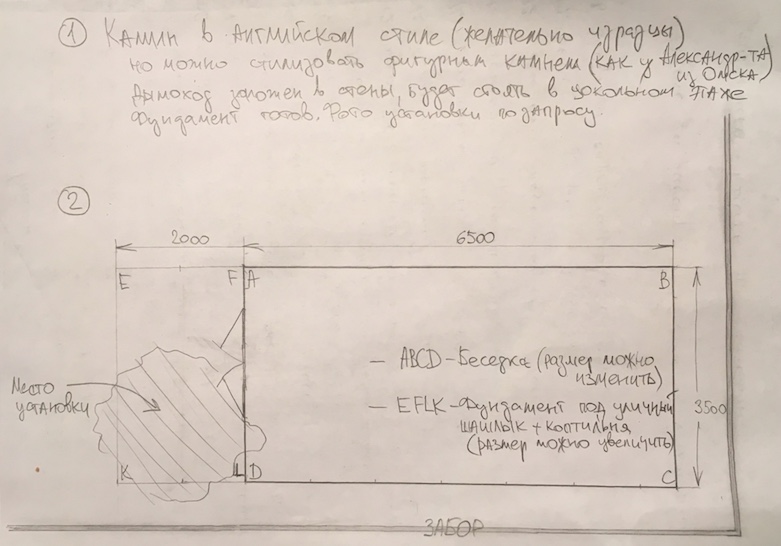 ① Камин в Английском стиле (желательно изразцы)
но можно стилизовать фигурным камнем (как у Александр-та
из Омска)
Дымоход заложен в стены, будет стоять в цокольном этаже
Фундамент готов. Фото установки по запросу.
②
2000 6500
E F A B
— ABCD - Беседка (размер можно
изменить)
Место
установки
— EFLK - Фундамент под уличный
шашлык + коптильня
(размер можно увеличить)
3500
K L D C
ЗАБОР